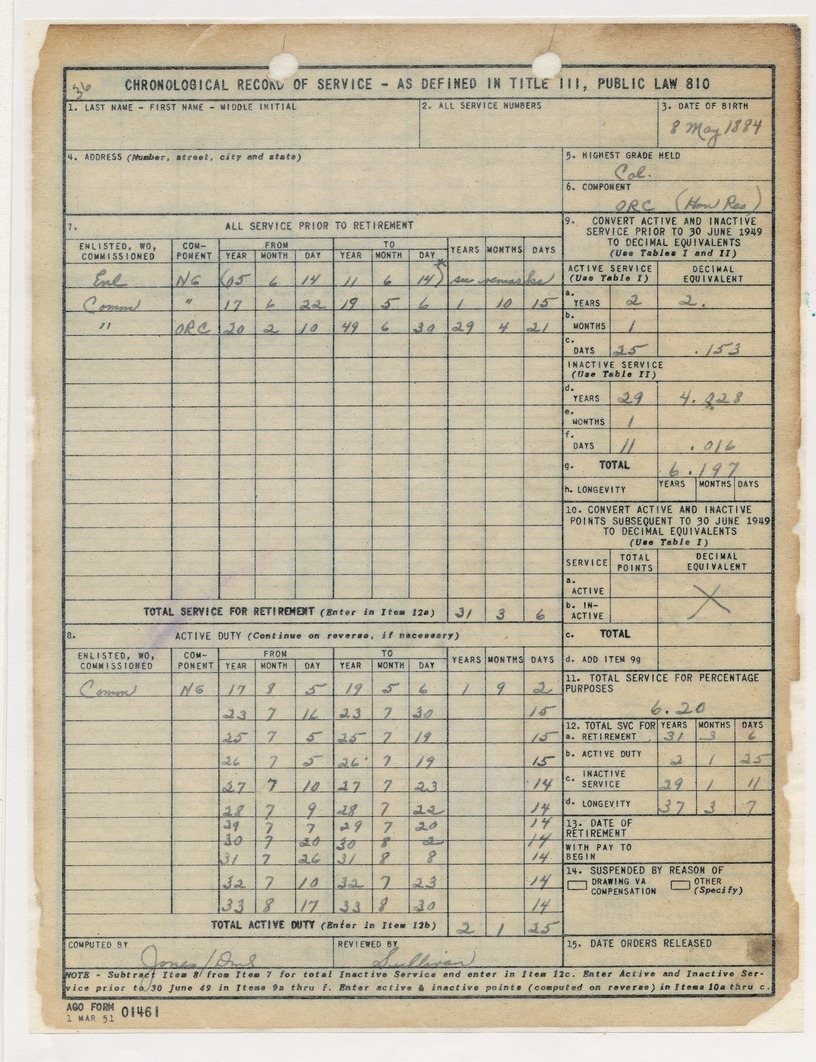 36
CHRONOLOGICAL RECORD OF SERVICE - AS DEFINED IN TITLE III, PUBLIC LAW 810
1. LAST NAME - FIRST NAME - MIDDLE INITIAL
2. ALL SERVICE NUMBERS
3. DATE OF BIRTH
8 May 1884
4. ADDRESS (Number, street, city and state)
5. HIGHEST GRADE HELD
Col.
6. COMPONENT
ORC (Hon Res)
7. ALL SERVICE PRIOR TO RETIREMENT
ENLISTED, WO, COMMISSIONED COM-PONENT FROM YEAR MONTH DAY TO YEAR MONTH DAY YEARS MONTHS DAYS
Enl NG (05 6 14 11 6 14)* see remarks
Comm " 17 6 22 19 5 6 1 10 15
" ORC 20 2 10 49 6 30 29 4 21
TOTAL SERVICE FOR RETIREMENT (Enter in Item 12a) 31 3 6
8. ACTIVE DUTY (Continue on reverse, if necessary)
ENLISTED, WO, COMMISSIONED COM-PONENT FROM YEAR MONTH DAY TO YEAR MONTH DAY YEARS MONTHS DAYS
Comm NG 17 8 5 19 5 6 1 9 2
23 7 16 23 7 30 15
25 7 5 25 7 19 15
26 7 5 26 7 19 15
27 7 10 27 7 23 14
28 7 9 28 7 22 14
29 7 7 29 7 20 14
30 7 20 30 8 2 14
31 7 26 31 8 8 14
32 7 10 32 7 23 14
33 8 17 33 8 30 14
TOTAL ACTIVE DUTY (Enter in Item 12b) 2 1 25
9. CONVERT ACTIVE AND INACTIVE
SERVICE PRIOR TO 30 JUNE 1949
TO DECIMAL EQUIVALENTS
(Use Tables I and II)
ACTIVE SERVICE (Use Table I) DECIMAL EQUIVALENT
a. YEARS 2 2.
b. MONTHS 1
c. DAYS 25 .153
INACTIVE SERVICE
(Use Table II)
d. YEARS 29 4.028
e. MONTHS 1
f. DAYS 11 .016
g. TOTAL 6.197
h. LONGEVITY YEARS MONTHS DAYS
10. CONVERT ACTIVE AND INACTIVE
POINTS SUBSEQUENT TO 30 JUNE 1949
TO DECIMAL EQUIVALENTS
(Use Table I)
SERVICE TOTAL POINTS DECIMAL EQUIVALENT
a. ACTIVE
b. IN-ACTIVE
c. TOTAL
d. ADD ITEM 9g
11. TOTAL SERVICE FOR PERCENTAGE
PURPOSES
6.20
12. TOTAL SVC FOR YEARS MONTHS DAYS
a. RETIREMENT 31 3 6
b. ACTIVE DUTY 2 1 25
c. INACTIVE SERVICE 29 1 11
d. LONGEVITY 37 3 7
13. DATE OF
RETIREMENT
WITH PAY TO
BEGIN
14. SUSPENDED BY REASON OF
DRAWING VA COMPENSATION OTHER (Specify)
COMPUTED BY
Jones/DmS
REVIEWED BY
Sullivan
15. DATE ORDERS RELEASED
NOTE - Subtract Item 8 from Item 7 for total Inactive Service and enter in Item 12c. Enter Active and Inactive Ser-
vice prior to 30 June 49 in Items 9a thru f. Enter active & inactive points (computed on reverse) in Items 10a thru c.
AGO FORM 01461
1 MAR 51